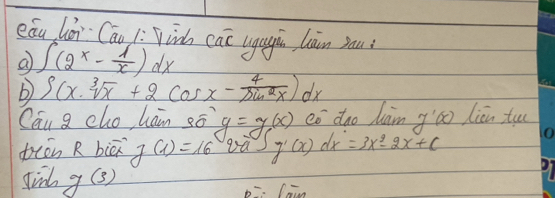 Câu hỏi: Câu 1: Tính các nguyên hàm sau:
a) ∫(2^x - 1/x) dx
b) ∫(x.∛x + 2 cosx - 4/sin²x) dx
Câu 2 cho hàm số y = g(x) có đạo hàm g'(x) liên tục
trên R biết g(1) = 16 và ∫g'(x) dx = 3x² - 2x + C
Tính g(3)